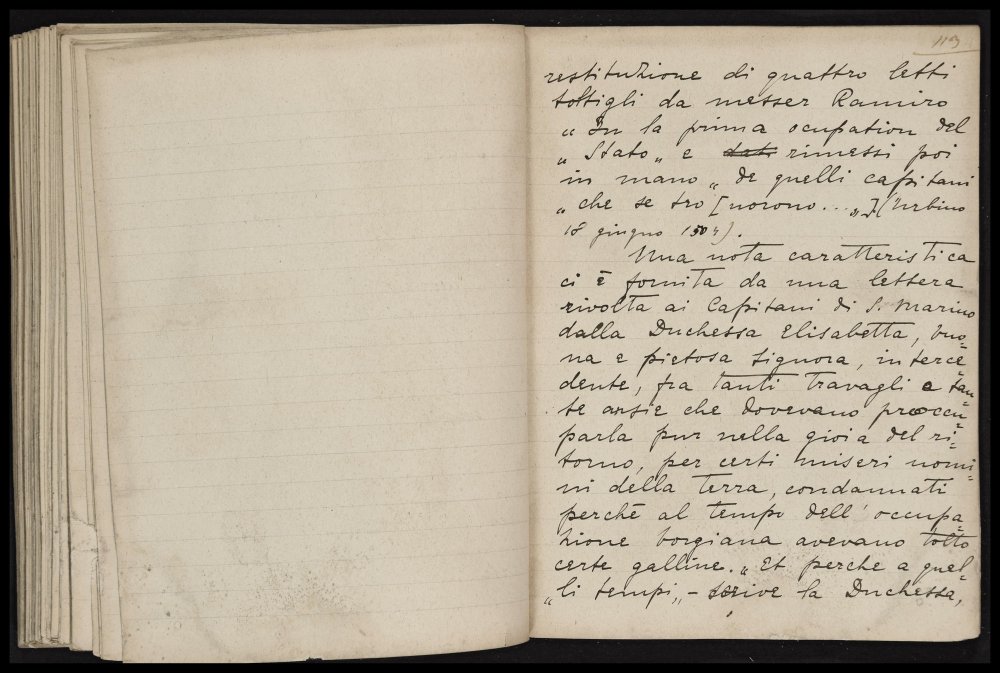 113
restituzione di quattro letti
toltigli da messer Ramiro
„ In la prima ocupation del
„ Stato „ e dati rimessi poi
in mano „ de quelli capitani
„ che se tro [novono ... „] (Urbino
18 giugno 1504).
Una nota caratteristica
ci è fornita da una lettera
rivolta ai Capitani di S. Marino
dalla Duchessa Elisabetta, buo=
na e pietosa signora, interce=
dente, fra tanti travagli e tan=
te ansie che dovevano preoccu=
parla pur nella gioia del ri=
torno, per certi miseri uomi=
ni della terra, condannati
perchè al tempo dell' occupa=
zione borgiana avevano tolto
certe galline. „ Et perche a quel=
„ li tempi „ – scrive la Duchessa,